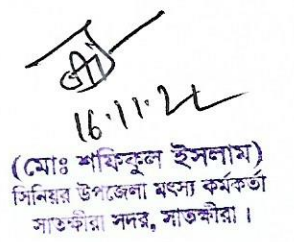 16.11.22
(মোঃ শফিকুল ইসলাম)
সিনিয়র উপজেলা মৎস্য কর্মকর্তা
সাতক্ষীরা সদর, সাতক্ষীরা।